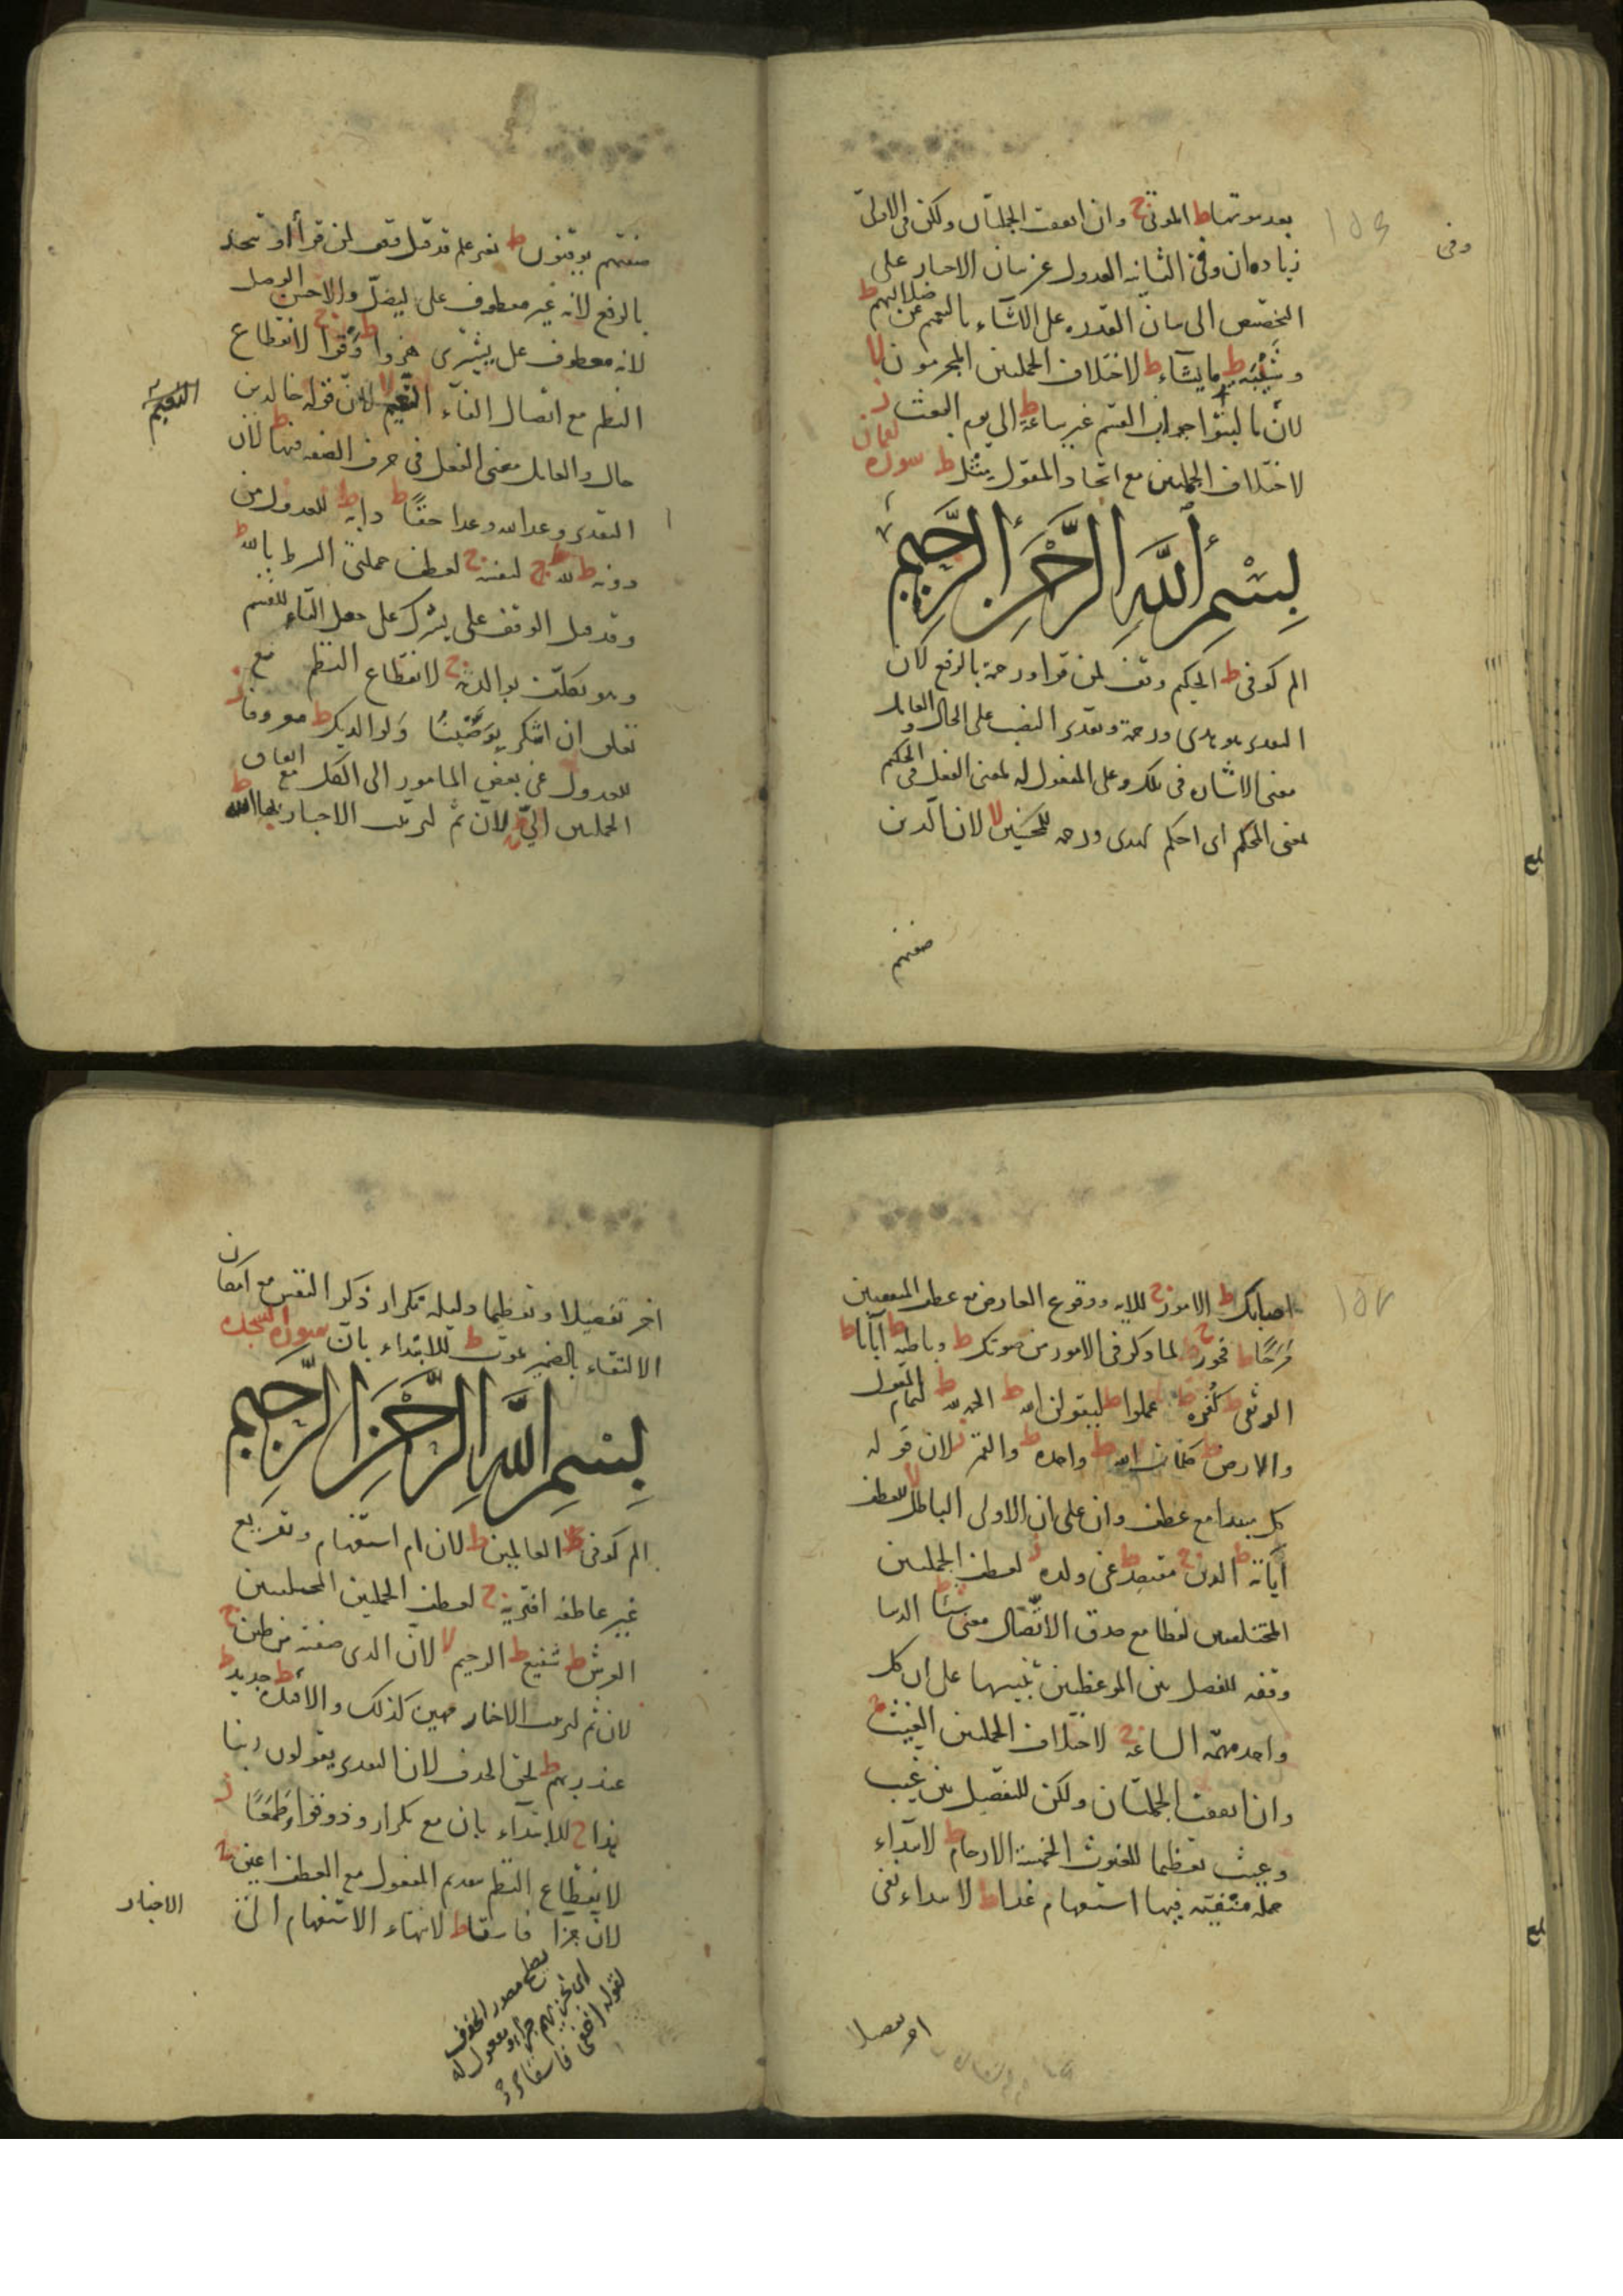 بعد موتها ط الموتى ج وان اتفقت الجملتان ولكن فى الاولى
زيادة ان وفى الثانية العدول عن بيان الاحياء على
التخصيص الى بيان القدرة على الاشياء بالتعميم عن ضلالتهم ط
وشيبة ط ما يشاء ط لاختلاف الجملتين المجرمون لا
لان ما لبثوا جواب القسم غير ساعة ط الى يوم البعث ز
لاختلاف الجملتين مع اتحاد المقول مثل ط سورة لقمان
بسم الله الرحمن الرحيم
الم كوفى ط الحكيم وقف لمن قرا ورحمة بالرفع لان
التقدير هو هدى ورحمة وتقدير النصب على الحال والعامل
معنى الاشارة فى تلك وعلى المفعول له لمعنى الفعل فى الحكيم
بمعنى المحكم اى احكم لهدى ورحمة للمحسنين لا لان الذين
صفتهم
وفى
صفتهم يوقنون ط لهو علم قد قيل وقف لمن قرأ او يتخذ
بالرفع لانه غير معطوف على ليضل والاحسن الوصل
لانه معطوف على يشترى هزوا ط وقرا ج لانقطاع
النظم مع اتصال الفاء النعيم لا لان قوله خالدين
النعيم
حال والعامل معنى الفعل فى حرف الصفة فيها ط لان
التقدير وعد الله وعدا حقا ط دابة ط للعدول من
دونه ط لله ط لنفسه ج لعطف جملتى الشرط بالله ط
وقد قيل الوقف على يشرك على جعل الباء للقسم
وهو تكلف بوالديه ج لانقطاع النظم مع
تعلق ان اشكر بوصينا ولوالديك ط معروفا ز
للعدول عن بعض المامور الى الكل مع اتفاق
الجملتين الى ج لان ثم لترتيب الاخبار بها الله ط
اصابك ط الامور ج للاية ووقوع العارض مع عطف المتفقين
مرحا ط فخور ج لما ذكر فى الامور من صوتك ط وباطنة ط آباءنا ط
الوثقى ط كفره ط عملوا ط ليقولن الله ط الحمد لله ط لتمام المقول
والارض ط كلمات الله ط واحدة ط والقمر ز لان قوله
كل مبتدا مع عطف وان على ان الاولى الباطل لا للعطف
آياته ط الدين ج مقتصد ط عن ولده ز لعطف الجملتين
المختلفتين لفظا مع صدق الاتصال معنى شيئا ط الدنيا
وقفه للفصل بين الموعظتين تنبيها على ان كل
واحد مهمة الساعة ج لاختلاف الجملتين الغيث ج
وان اتفقت الجملتان ولكن للتفصيل بين غيب
وغيث تعظيما للغيوث الخمسة الارحام ط لابتداء
جملة منفية فيها استفهام غدا ط لابتداء نفى
اخر تفصيلا
اخر تفصيلا وتعظيما دليله تكرار ذكر النفس مع امكان
الاكتفاء بالضمير تموت ط للابتداء بان سورة السجدة
بسم الله الرحمن الرحيم
الم كوفى ط العالمين ط لان ام استفهام وتقريع
غير عاطفة افتريه ج لعطف الجملتين المختلفتين
العرش ط شفيع ط الرحيم لا لان الذى صفته من طين ج
لان ثم لترتيب الاخبار مهين كذلك والافئدة ط جديد ط
عند ربهم ط لحق الحذف لان التقدير يقولون ربنا
هذا ج للابتداء بان مع تكرار وذوقوا وطمعا ز
لانقطاع النظم بتقديم المفعول مع العطف اعين ج
لان جزا فاسقا ط لانتهاء الاستفهام الى
الاخبار
يصلح مصدر المحذوف
اى نجزيهم جزا او مفعول له
لقوله اخفى فاسقا